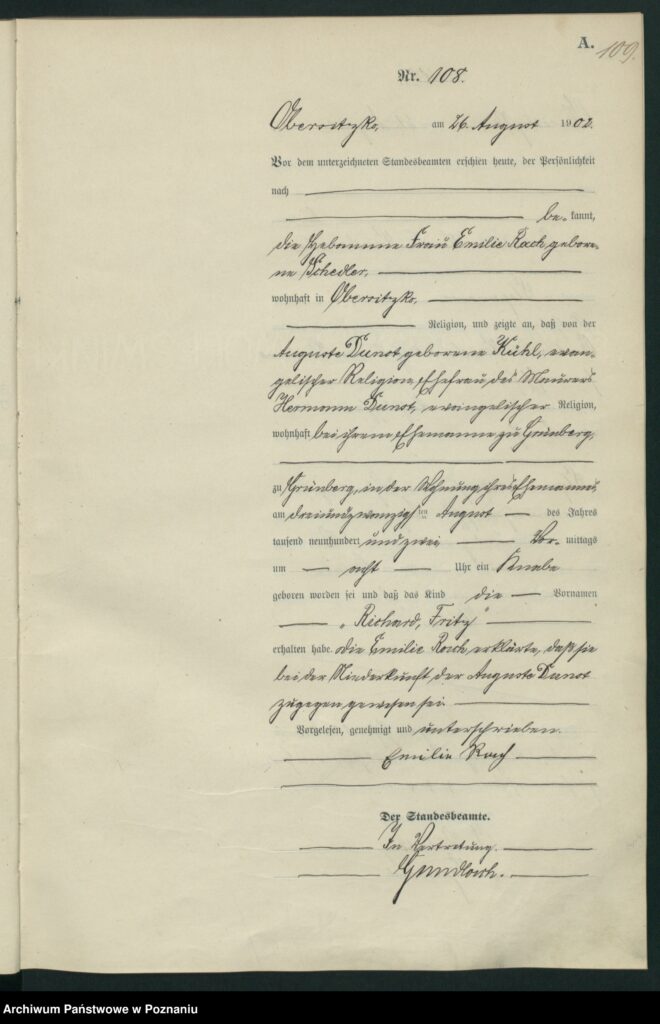 A.
109.
Nr. 108.
Obersitzko, am 26. August 1902.
Vor dem unterzeichneten Standesbeamten erschien heute, der Persönlichkeit
nach
be- kannt,
die Hebamme Frau Emilie Rach, gebore-
ne Schedler,
wohnhaft in Obersitzko,
Religion, und zeigte an, daß von der
Auguste Dunst, geborene Kühl, evan-
gelischer Religion, Ehefrau des Maurers
Hermann Dunst, evangelischer Religion,
wohnhaft bei ihrem Ehemanne zu Grünberg,
zu Grünberg, in der Wohnung ihres Ehemannes,
am dreiundzwanzigsten August des Jahres
tausend neunhundert und zwei Vor- mittags
um acht Uhr ein Knabe
geboren worden sei und daß das Kind die Vornamen
„Richard, Fritz"
erhalten habe. Die Emilie Rach erklärte, daß sie
bei der Niederkunft der Auguste Dunst
zugegen gewesen sei.
Vorgelesen, genehmigt und unterschrieben.
Emilie Rach
Der Standesbeamte.
In Vertretung.
Gundlach.
Archiwum Państwowe w Poznaniu